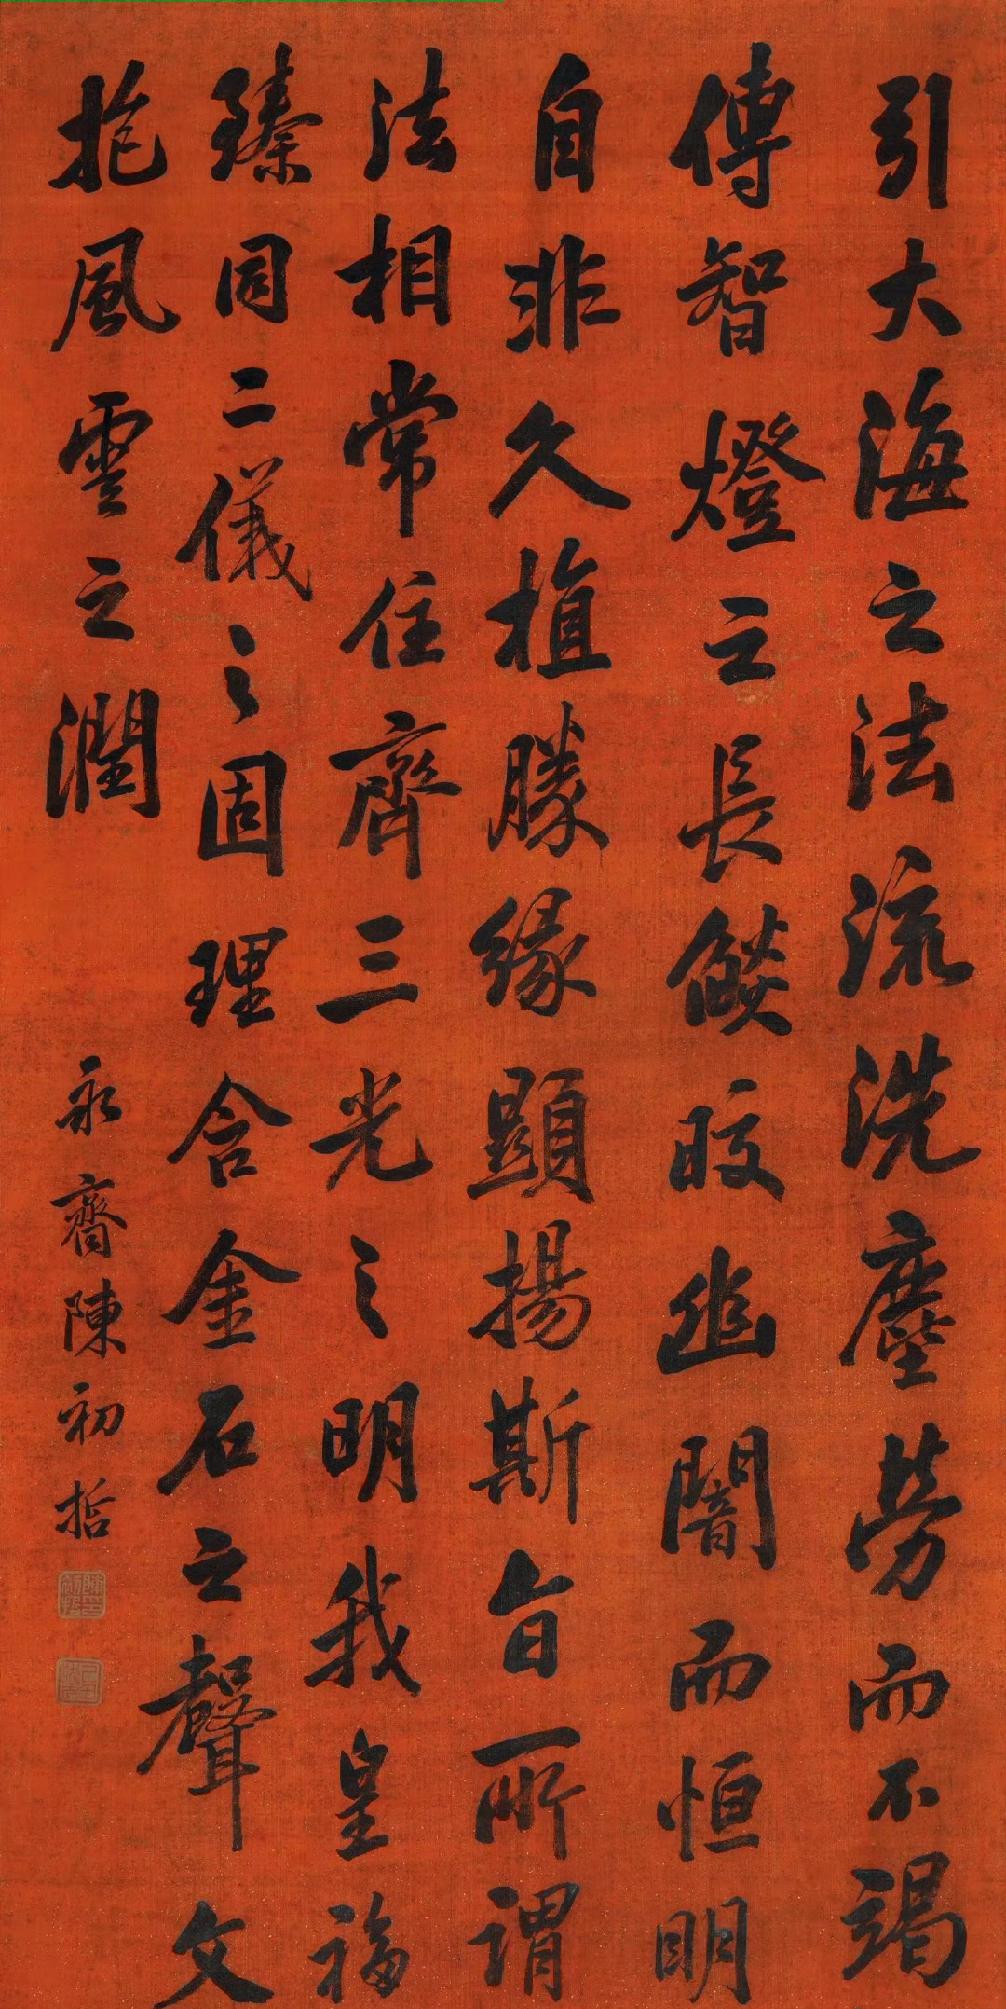 引大海之法流洗塵勞而不竭
傳智燈之長燄皎幽闇而恒明
自非久植勝緣顯揚斯旨所謂
法相常住齊三光之明我皇福
臻同二儀之固理含金石之聲文
抱風雲之潤
永齋陳初哲